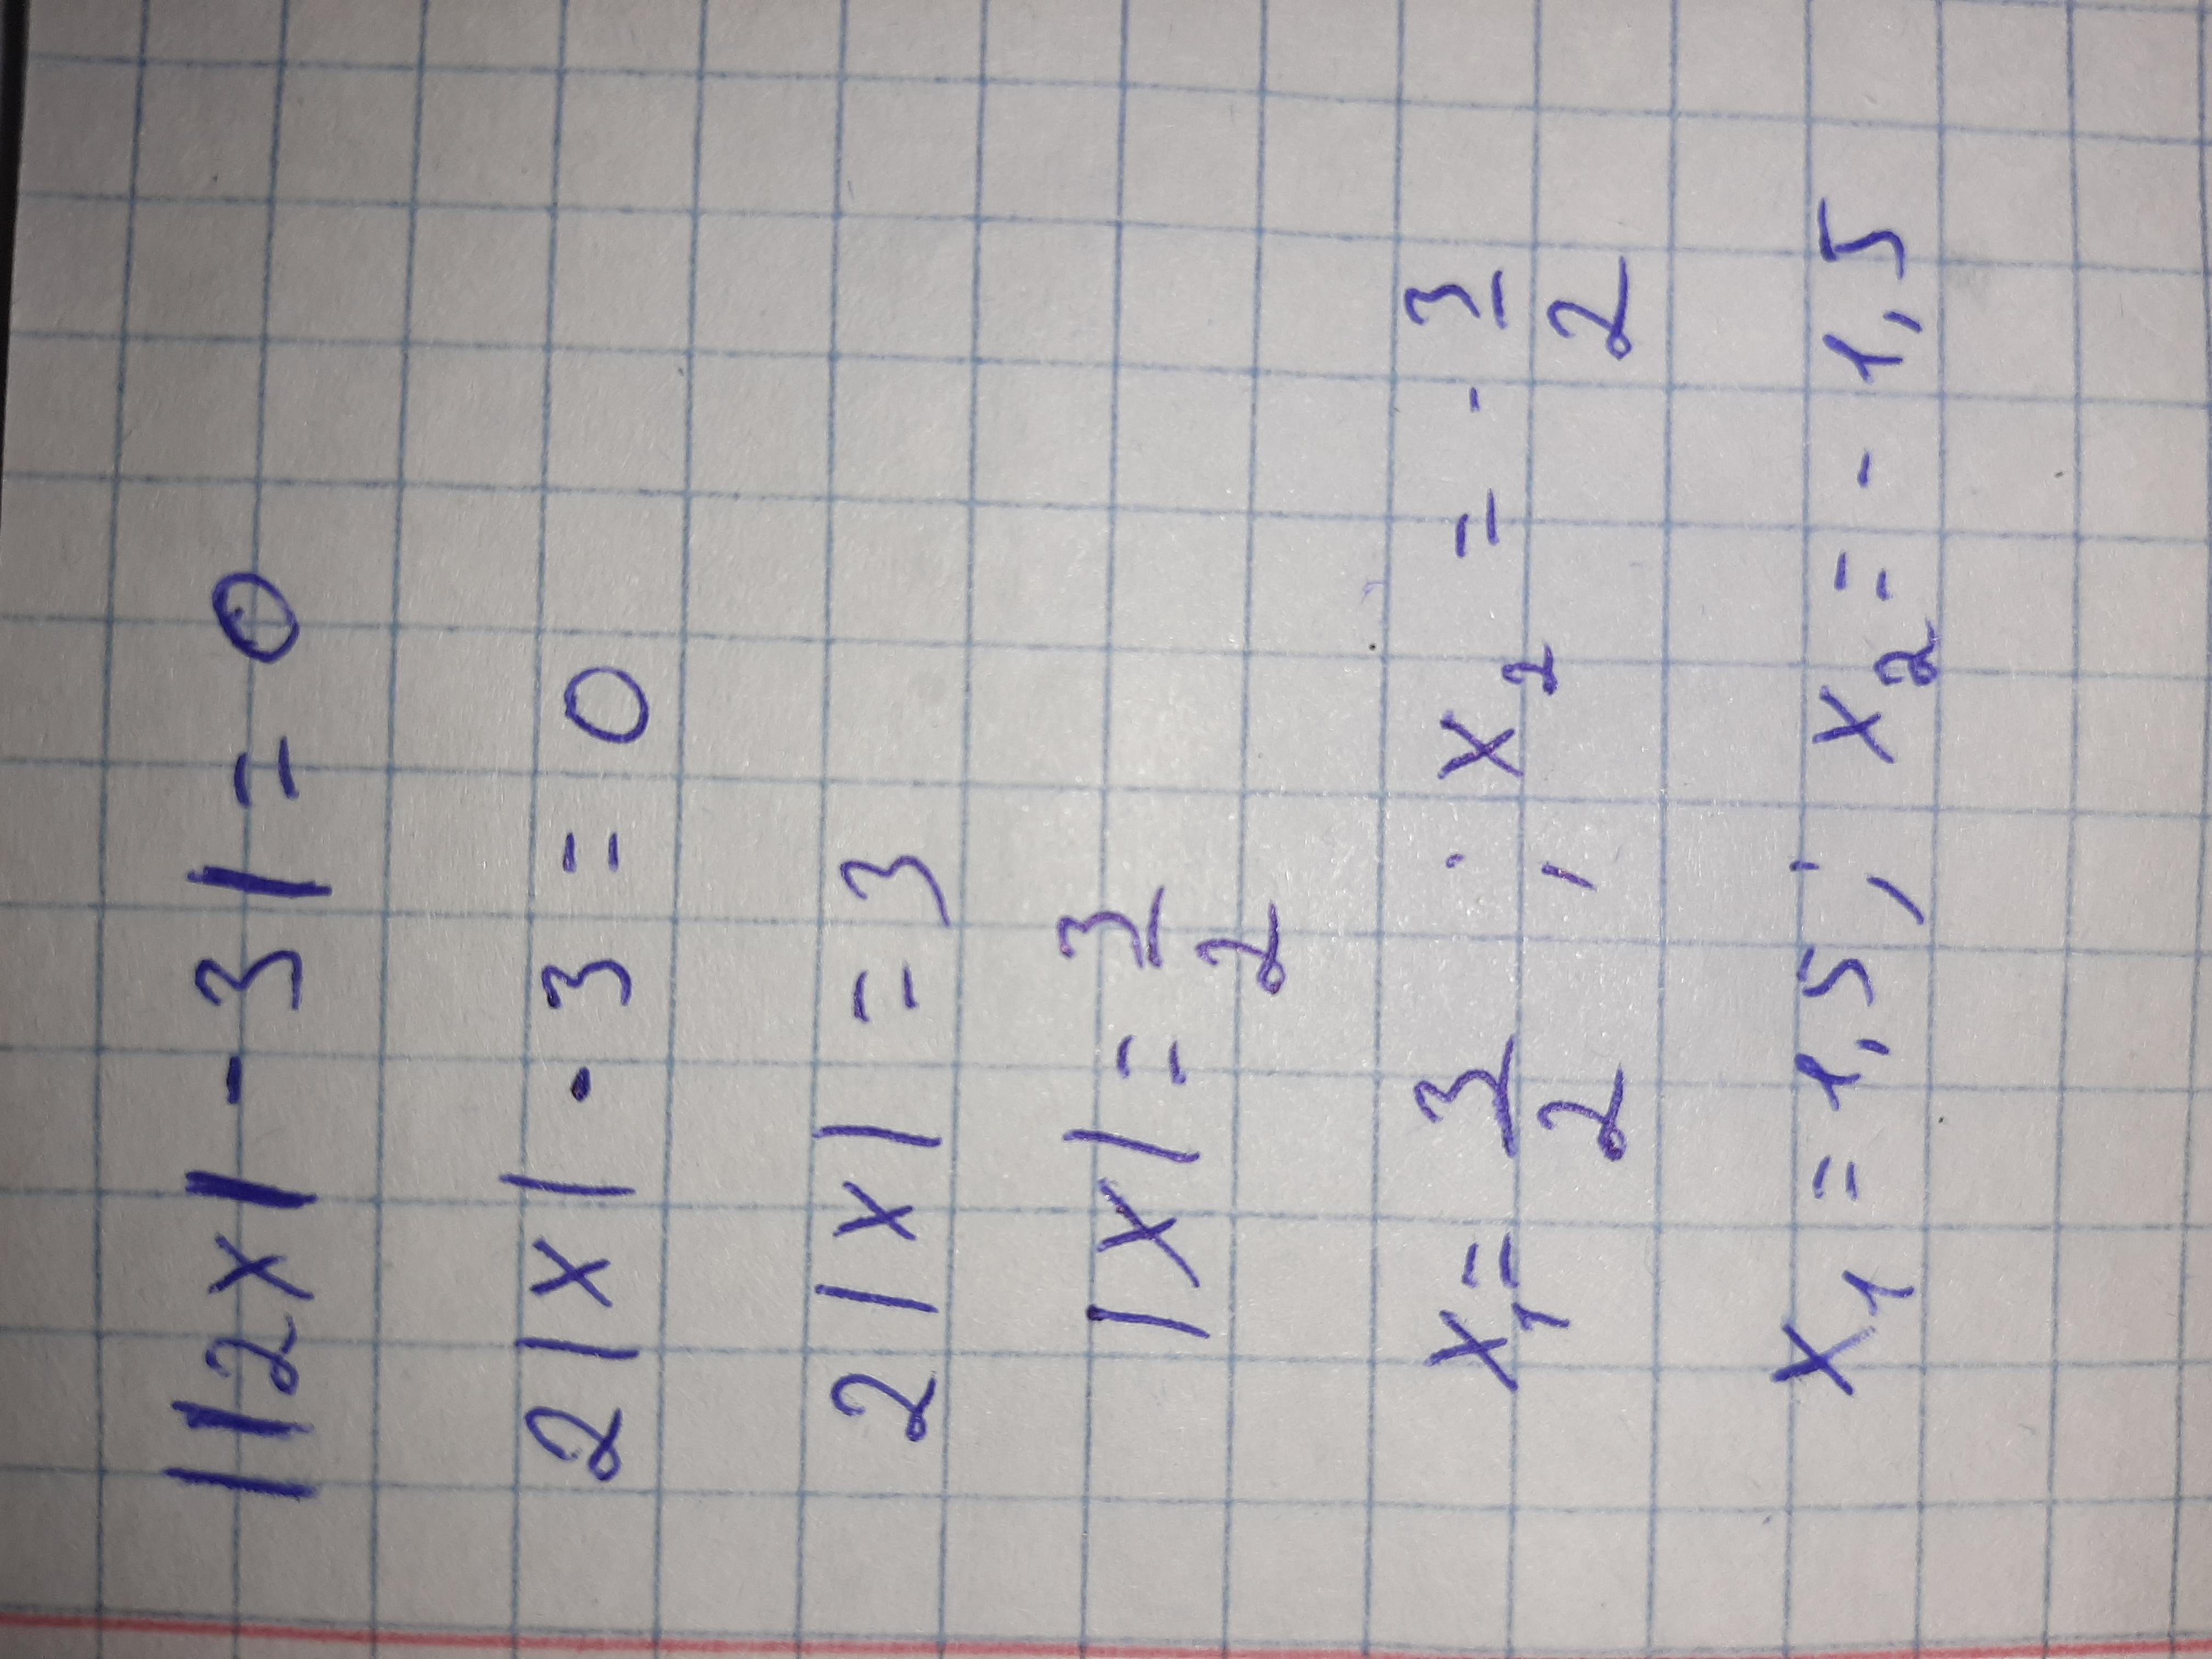 ||2x|-3|=0
2|x|·3=0
2|x|=3
|x|=3/2
x₁=3/2; x₂=-3/2
x₁=1,5; x₂=-1,5